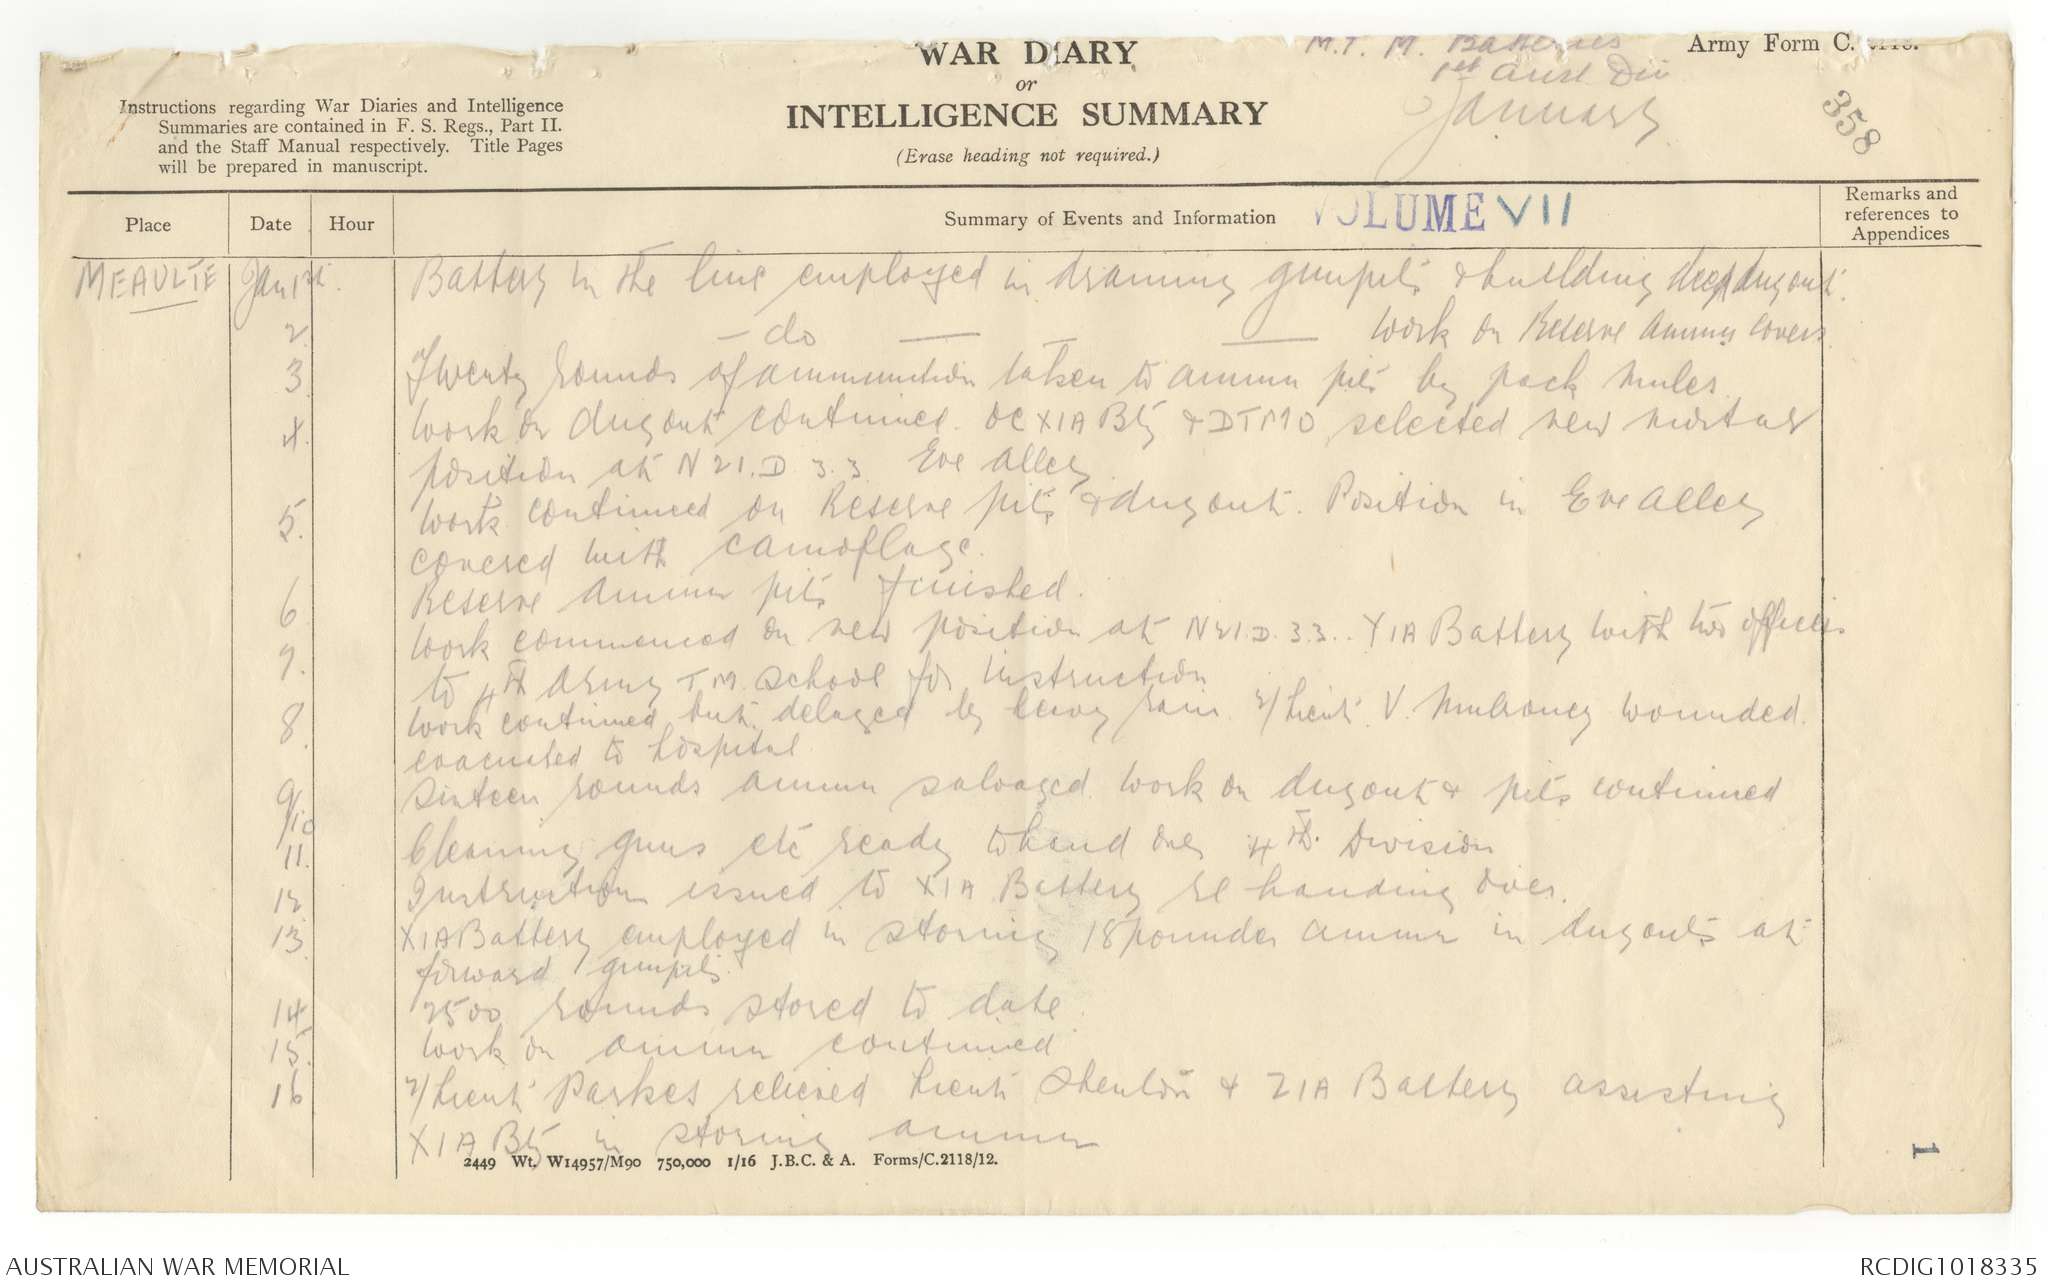 WAR DIARY
or
INTELLIGENCE SUMMARY
(Erase heading not required.)
M.T.M. Batteries
1st Aust Div
January
Army Form C. 2118.
358
Instructions regarding War Diaries and Intelligence
Summaries are contained in F. S. Regs., Part II.
and the Staff Manual respectively. Title Pages
will be prepared in manuscript.
Place Date Hour Summary of Events and Information VOLUME VII Remarks and references to Appendices
MEAULTE Jan 1st. Battery in the line employed in draining gunpits & building deep dugout.
2. — do — — — work on Reserve ammn covers.
3 Twenty rounds of ammunition taken to ammn pits by pack mules.
4. Work on dugout continued. OC X1A Bty & DTMO selected new mortar
position at N21.D.3.3 Eve Alley
5. Work continued on Reserve pits & dugout. Position in Eve Alley
covered with camoflage.
6 Reserve ammn pits finished.
7. Work commenced on new position at N21.D.3.3.. Y1A Battery with two officers
to 4th Army T.M. School for instruction
8. Work continued but delayed by heavy rain. 2/Lieut V. Mulroney wounded.
evacuated to hospital
9/10 Sixteen rounds ammn salvaged. Work on dugout & pits continued
11. Cleaning guns etc ready to hand over 4th Division
12. Instruction issued to X1A Battery re handing over.
13. X1A Battery employed in storing 18 pounder ammn in dugouts at
forward gunpits.
14 2500 rounds stored to date.
15. Work on ammn continued
16 2/Lieut Parkes relieved Lieut Shenton & Z1A Battery assisting
X1A Bty in storing ammn
2449 Wt. W14957/M90 750,000 1/16 J.B.C. & A. Forms/C.2118/12.
1
AUSTRALIAN WAR MEMORIAL
RCDIG1018335